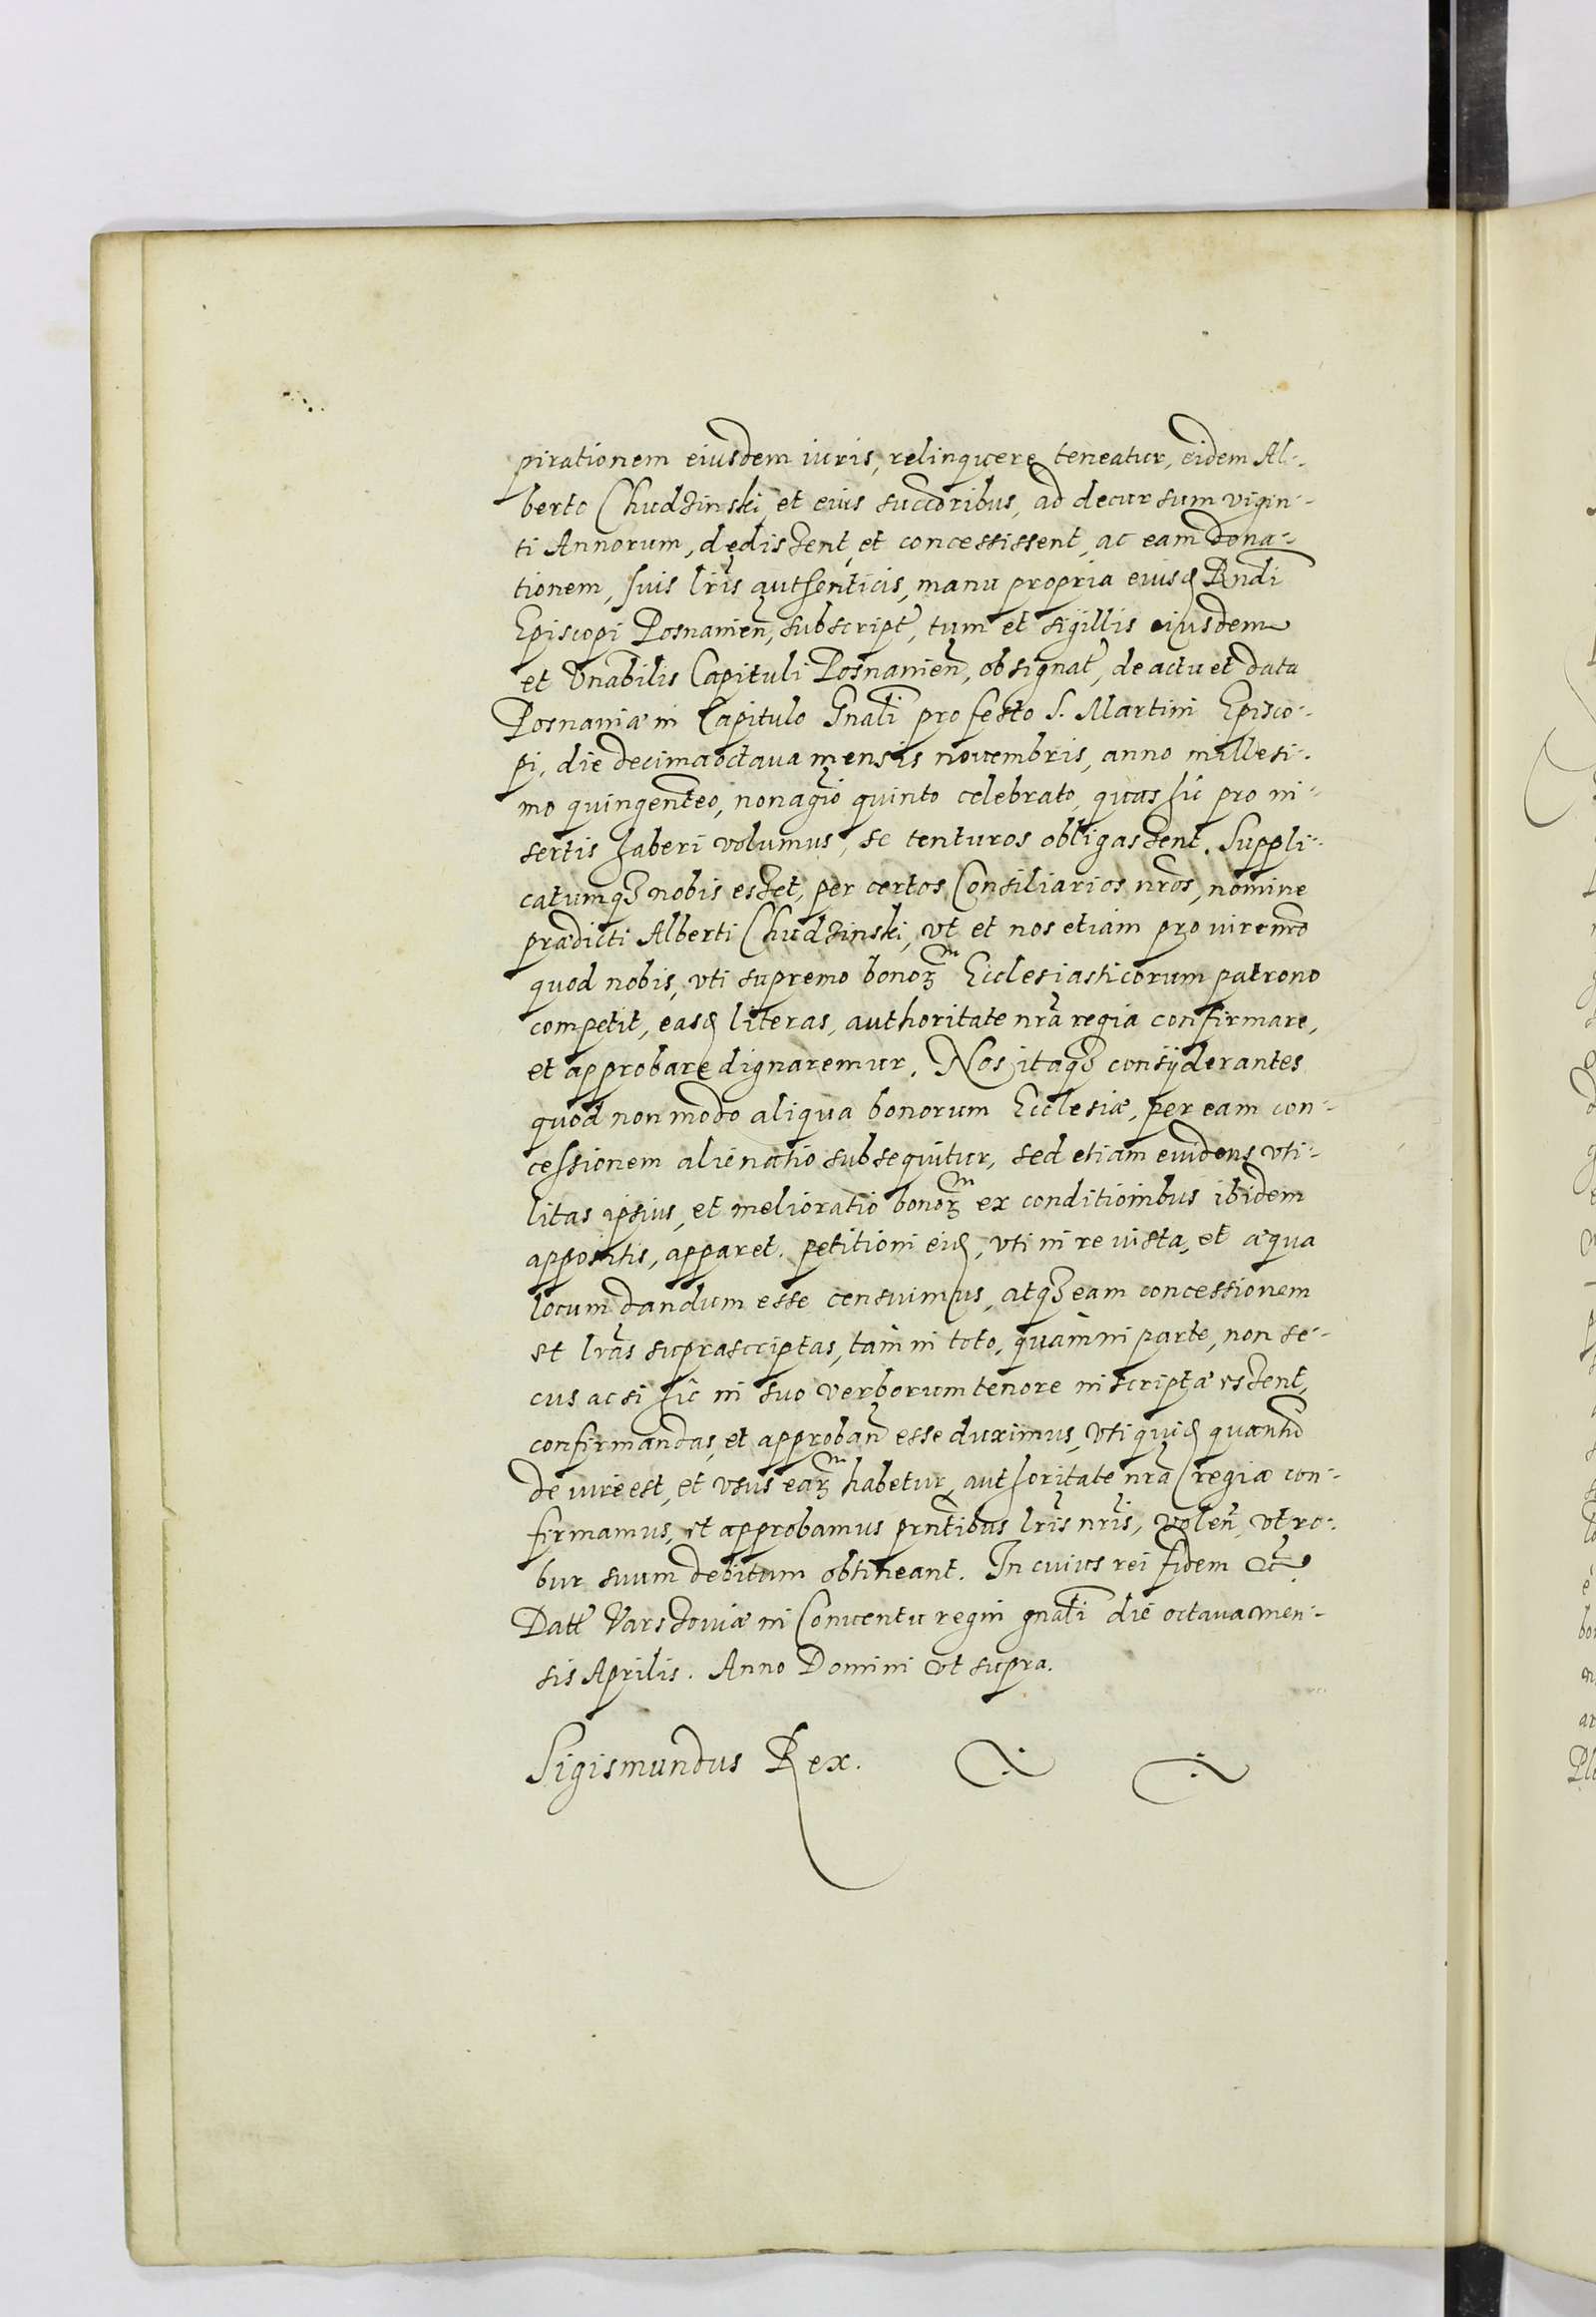 pirationem eiusdem iuris, relinquere teneatur, eidem Al-
berto Chudzinski, et eius succoribus, ad decursum vigin-
ti Annorum, dedissent, et concessissent, ac eam dona-
tionem, suis lris authenticis, manu propria eiusd Rndi
Episcopi Posnanien, subscript, tum et sigillis eiusdem
et Vnabilis Capituli Posnanien, obsignat, de actu et data
Posnaniæ in Capitulo Gnali pro festo S. Martini Episco-
pi, die decima octaua mensis nouembris, anno millesi-
mo quingenteo, nonagio quinto celebrato, quas hic pro in-
sertis haberi volumus, se tenturos obligassent. Suppli-
catumq3 nobis esset, per certos Consiliarios nros, nomine
prædicti Alberti Chudzinski, vt et nos etiam pro iure nro
quod nobis, vti supremo bonor Ecclesiasticorum patrono
competit, easd literas, authoritate nra regia confirmare,
et approbare dignaremur. Nos itaq3 consyderantes
quod non modo aliqua bonorum Ecclesiæ, per eam con-
cessionem alienatio subsequitur, sed etiam euidens vti-
litas ipsius, et melioratio bonor ex conditioinbus ibidem
appositis, apparet. petitioni eiusd, vti in re iusta, et æqua
locum dandum esse censuimus, atq3 eam concessionem
et lras suprascriptas, tam in toto, quàm in parte, non se-
cus ac si hic in suo verborum tenore inscriptæ essent,
confirmandas, et approban esse duximus, vti quid quantu
de iure est, et vsus ear habetur, authoritate nra regia con-
firmamus, et approbamus prntibus lris nris, volen, vt ro-
bur suum debitum obtineant. In cuius rei fidem &c
Datt Varsouiæ in Conuentu regni gnali die octaua men-
sis Aprilis. Anno Domini vt supra.
Sigismundus Rex.